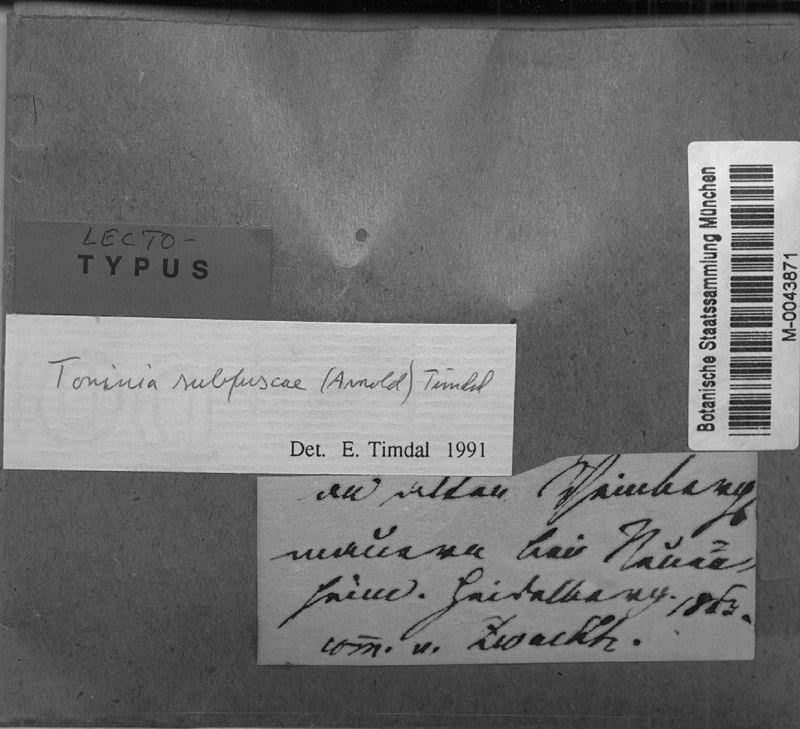 LECTO-
TYPUS
Toninia subfuscae (Arnold) Timdal
Det. E. Timdal 1991
an alten Weinberg
mauern bei
heim. Heidelberg. 1863.
com. v. Zwackh.
Botanische Staatssammlung München
M-0043871